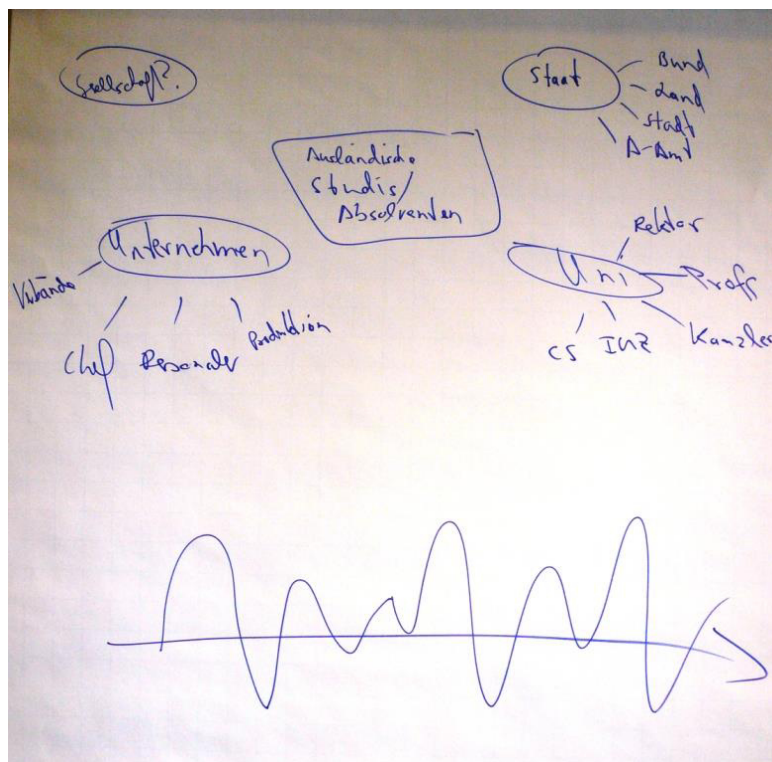 Gesellschaft?
Staat
Bund
Land
Stadt
A-Amt
Ausländische
Studis/
Absolventen
Unternehmen
Verbände
Chef
Personaler
Produktion
Uni
Rektor
Profs
Kanzler
CS
IUZ